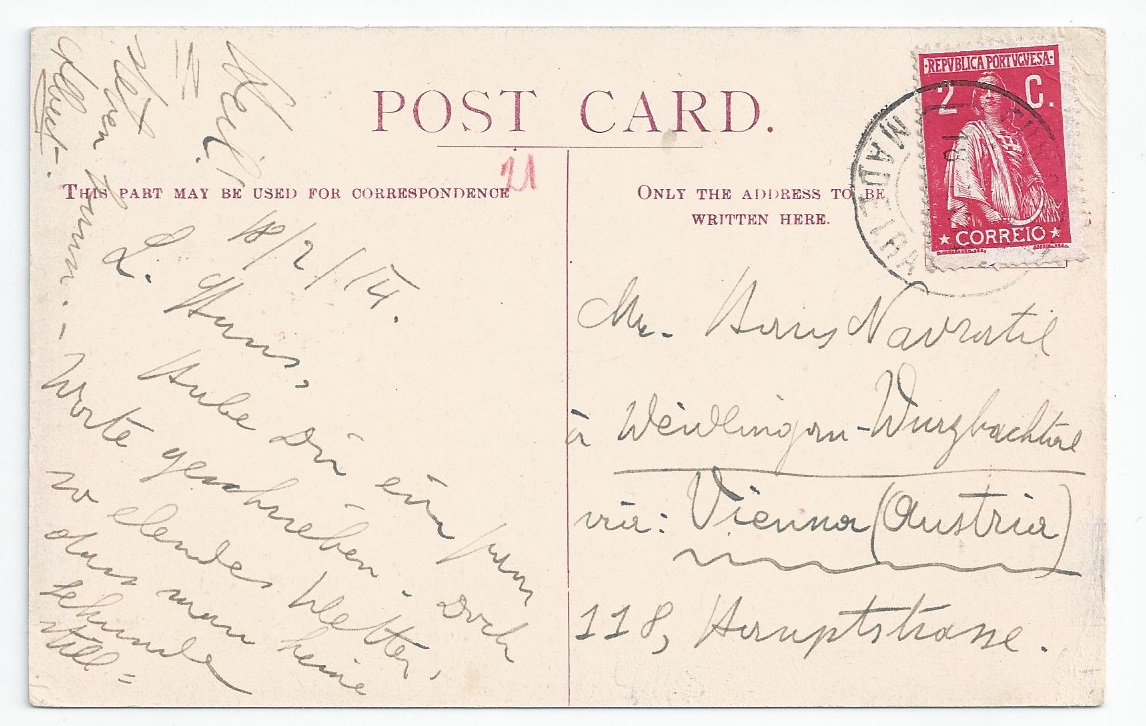 POST CARD.
THIS PART MAY BE USED FOR CORRESPONDENCE
21
ONLY THE ADDRESS TO BE
WRITTEN HERE.
REPVBLICA PORTVGVESA
2 C.
CORREIO
MADEIRA
18/2/14.
L. Hans,
Habe Dir ein paar
Worte geschrieben. Doch
so elendes Wetter,
dass man keine
Sekunde
still-
stehen kann. -
Albert.
Mr. Hans Navratil
à Weidlingau-Wurzbachtal
via: Vienna (Austria)
118, Hauptstrasse.